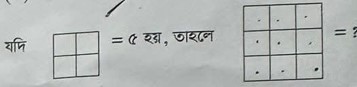 যদি = ৫ হয়, তাহলে = ?